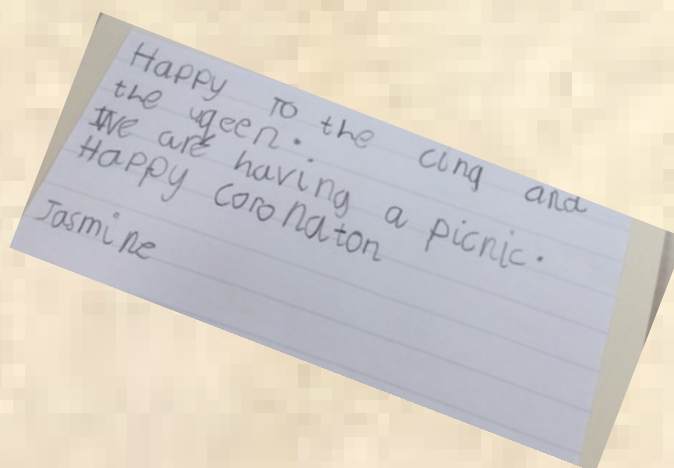 Happy To the cinq and
the uqeen.
We are having a picnic.
Happy Coronaton
Jasmine